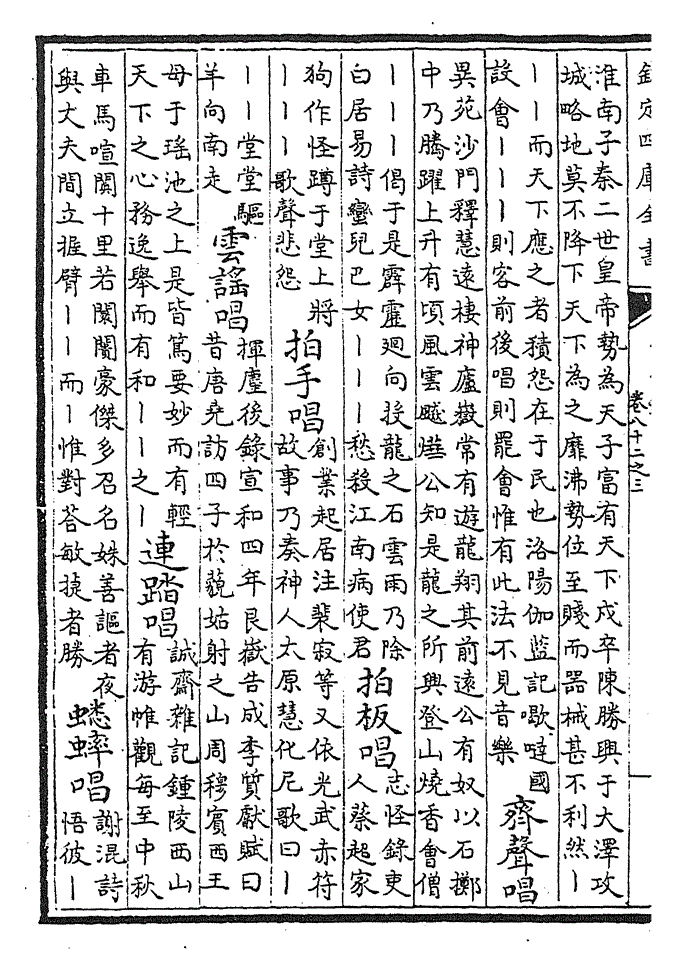 欽定四庫全書
卷八十二之三
淮南子秦二世皇帝勢為天子富有天下戍卒陳勝興于大澤攻
城略地莫不降下天下為之靡沸勢位至賤而器械甚不利然丨
丨丨而天下應之者積怨在于民也洛陽伽監記歇噠國
設會丨丨丨則客前後唱則罷會惟有此法不見音樂
齊聲唱
異苑沙門釋慧遠棲神廬嶽常有遊龍翔其前遠公有奴以石擲
中乃騰躍上升有頃風雲飈公知是龍之所興登山燒香會僧
丨丨丨偈于是霹靂迴向投龍之石雲雨乃除
白居易詩蠻兒巴女丨丨丨愁殺江南病使君
拍板唱
志怪錄吏
人蔡超家
狗作怪蹲于堂上將
丨丨丨歌聲悲怨
拍手唱
創業起居注裴寂等又依光武赤符
故事乃奏神人太原慧化尼歌曰丨
丨丨堂堂驅
羊向南走
雲謠唱
揮麈後錄宣和四年艮嶽告成李質獻賦曰
昔唐堯訪四子於藐姑射之山周穆賓西王
母于瑤池之上是皆篤要妙而有輕
天下之心務逸舉而有和丨丨之丨
連踏唱
誠齋雜記鍾陵西山
有游帷觀每至中秋
車馬喧闐十里若闤闠豪傑多召名姝善謳者夜
與丈夫間立握臂丨丨而丨惟對荅敏捷者勝
蟋蟀唱
謝混詩
悟彼丨